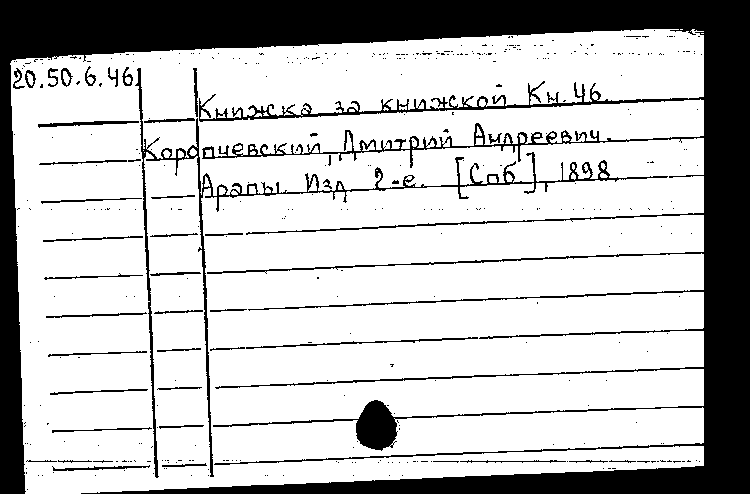 20.50.6.46
Книжка за книжкой Кн. 46.
Коропчевский, Дмитрий Андреевич.
Арапы. Изд. 2-е. [Спб], 1898.